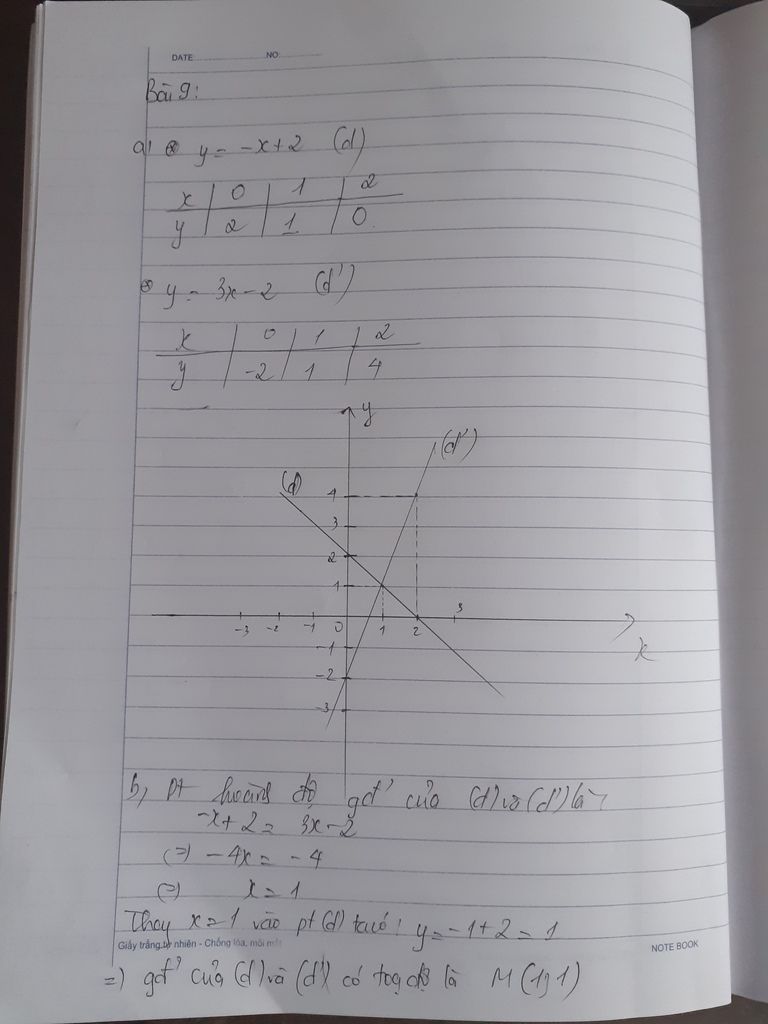 DATE NO:
Bài 9:
a) ⊗ y = -x + 2 (d)
x | 0 | 1 | 2
y | 2 | 1 | 0
⊗ y = 3x - 2 (d')
x | 0 | 1 | 2
y | -2 | 1 | 4
y
(d')
(d)
4
3
2
1
-3 -2 -1 0 1 2 3
x
-1
-2
-3
b, pt hoành độ gđ' của (d) và (d') là:
-x + 2 = 3x - 2
(=) -4x = -4
(=) x = 1
Thay x = 1 vào pt (d) ta có: y = -1 + 2 = 1
Giấy trắng tự nhiên - Chống lóa, mỏi mắt NOTE BOOK
=) gđ' của (d) và (d') có toạ độ là M (1; 1)